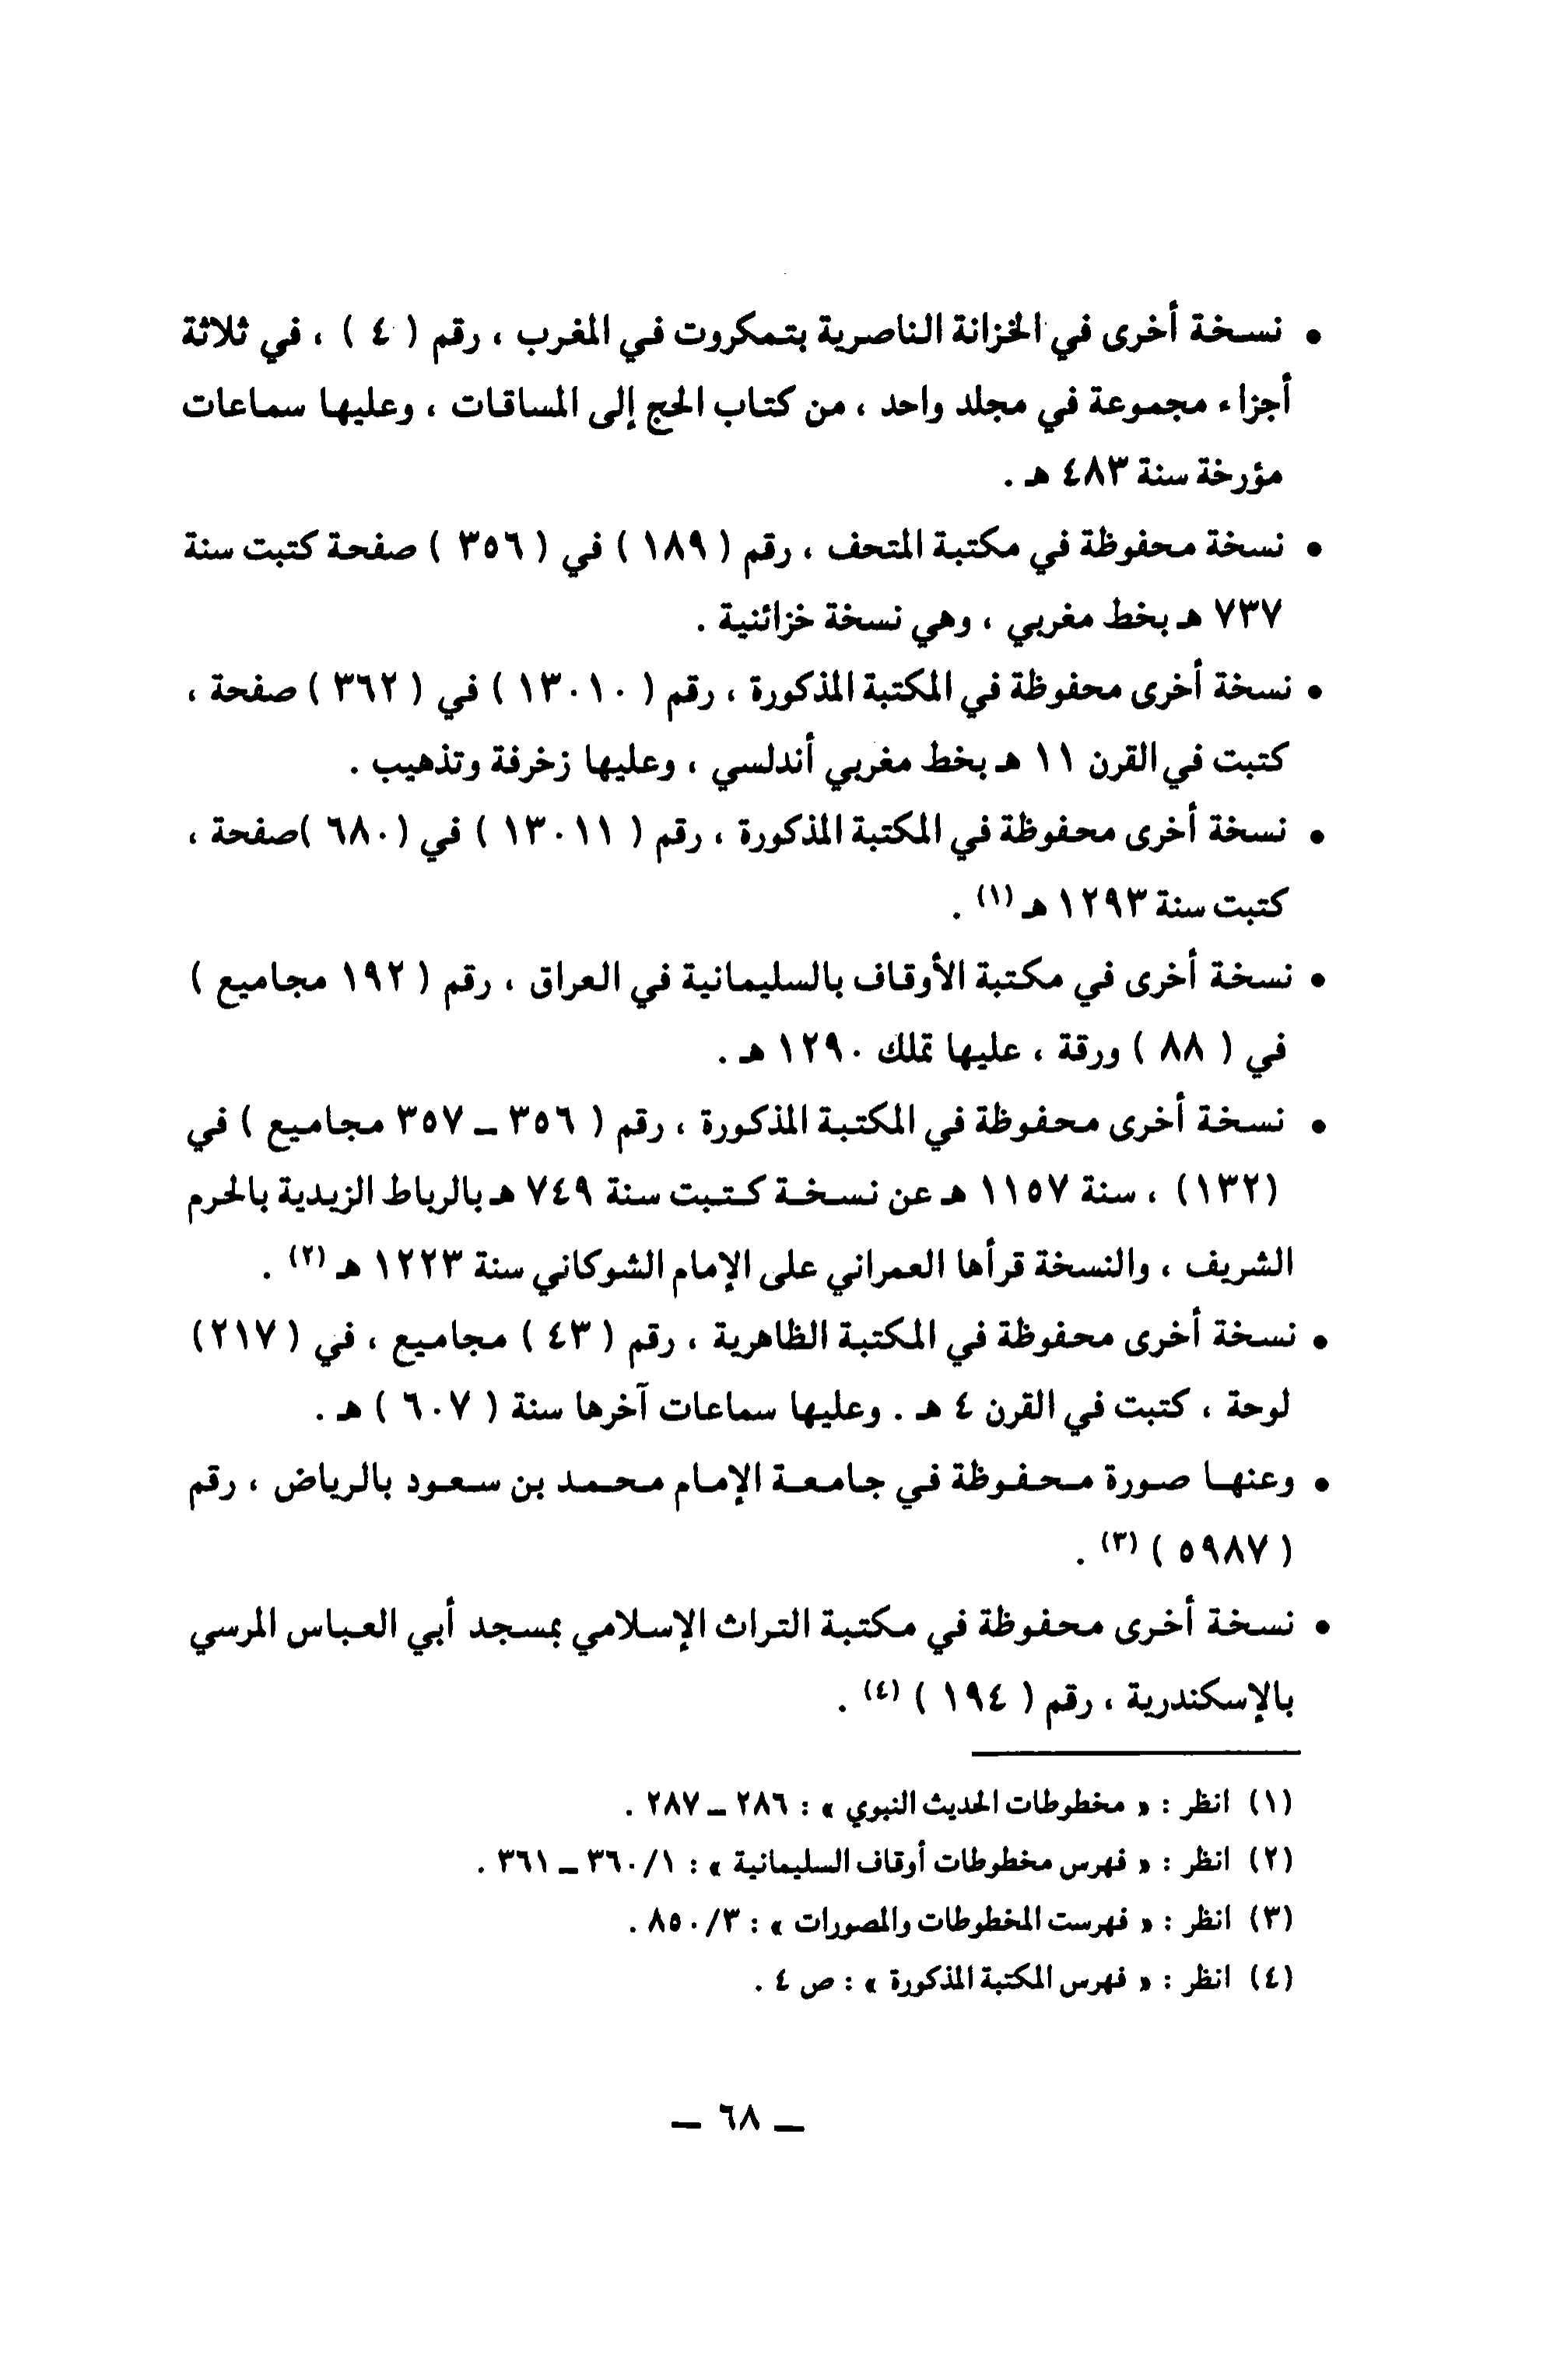 • نسخة أخرى في الخزانة الناصرية بتمكروت في المغرب ، رقم ( ٤ ) ، في ثلاثة
أجزاء مجموعة في مجلد واحد ، من كتاب الحج إلى المساقات ، وعليها سماعات
مؤرخة سنة ٤٨٣ هـ .
• نسخة محفوظة في مكتبة المتحف ، رقم ( ١٨٩ ) في ( ٣٥٦ ) صفحة كتبت سنة
٧٣٧ هـ بخط مغربي ، وهي نسخة خزائنية .
• نسخة أخرى محفوظة في المكتبة المذكورة ، رقم ( ١٣٠١٠ ) في ( ٣٦٢ ) صفحة ،
كتبت في القرن ١١ هـ بخط مغربي أندلسي ، وعليها زخرفة وتذهيب .
• نسخة أخرى محفوظة في المكتبة المذكورة ، رقم ( ١٣٠١١ ) في (٦٨٠ )صفحة ،
كتبت سنة ١٢٩٣ هـ (١) .
• نسخة أخرى في مكتبة الأوقاف بالسليمانية في العراق ، رقم ( ١٩٢ مجاميع )
في ( ٨٨ ) ورقة ، عليها تملك ١٢٩٠ هـ .
• نسخة أخرى محفوظة في المكتبة المذكورة ، رقم ( ٣٥٦ ــ ٣٥٧ مجاميع ) في
(١٣٢) ، سنة ١١٥٧ هـ عن نسخة كتبت سنة ٧٤٩ هـ بالرباط الزيدية بالحرم
الشريف ، والنسخة قرأها العمراني على الإمام الشوكاني سنة ١٢٢٣ هـ (٢) .
• نسخة أخرى محفوظة في المكتبة الظاهرية ، رقم ( ٤٣ ) مجاميع ، في ( ٢١٧)
لوحة ، كتبت في القرن ٤ هـ . وعليها سماعات آخرها سنة ( ٦٠٧ ) هـ .
• وعنها صورة محفوظة في جامعة الإمام محمد بن سعود بالرياض ، رقم
( ٥٩٨٧ ) (٣) .
• نسخة أخرى محفوظة في مكتبة التراث الإسلامي بمسجد أبي العباس المرسي
بالإسكندرية ، رقم ( ١٩٤ ) (٤) .
(١) انظر : « مخطوطات الحديث النبوي » : ٢٨٦ ــ ٢٨٧ .
(٢) انظر : « فهرس مخطوطات أوقاف السليمانية » : ١/ ٣٦٠ ــ ٣٦١ .
(٣) انظر : « فهرست المخطوطات والمصورات » : ٣/ ٨٥٠ .
(٤) انظر : « فهرس المكتبة المذكورة » : ص ٤ .
ــ ٦٨ ــ